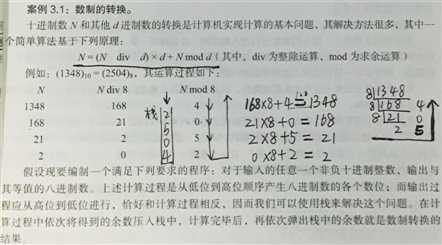 案例 3.1：数制的转换。
十进制数 N 和其他 d 进制数的转换是计算机实现计算的基本问题，其解决方法很多，其中一
个简单算法基于下列原理：
N = (N div d) × d + N mod d（其中，div 为整除运算，mod 为求余运算）
例如：(1348)10 = (2504)8，其运算过程如下：
N N div 8 N mod 8
1348 168 4
168 21 0
21 2 5
2 0 2
栈
2
5
0
4
168×8+4=1348
21×8+0=168
2×8+5=21
0×8+2=2
8 1348
8 168 4
8 21 0
2 5
假设现要编制一个满足下列要求的程序：对于输入的任意一个非负十进制整数，输出与
其等值的八进制数。上述计算过程是从低位到高位顺序产生八进制数的各个数位；而输出过
程应从高位到低位进行，恰好和计算过程相反，因而我们可以使用栈来解决这个问题。在计
算过程中依次将得到的余数压入栈中，计算完毕后，再依次弹出栈中的余数就是数制转换的
结果。